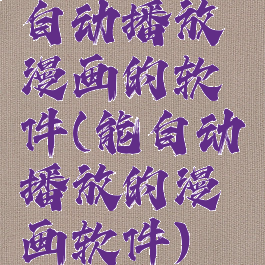 自动播放
漫画的软
件(能自动
播放的漫
画软件)